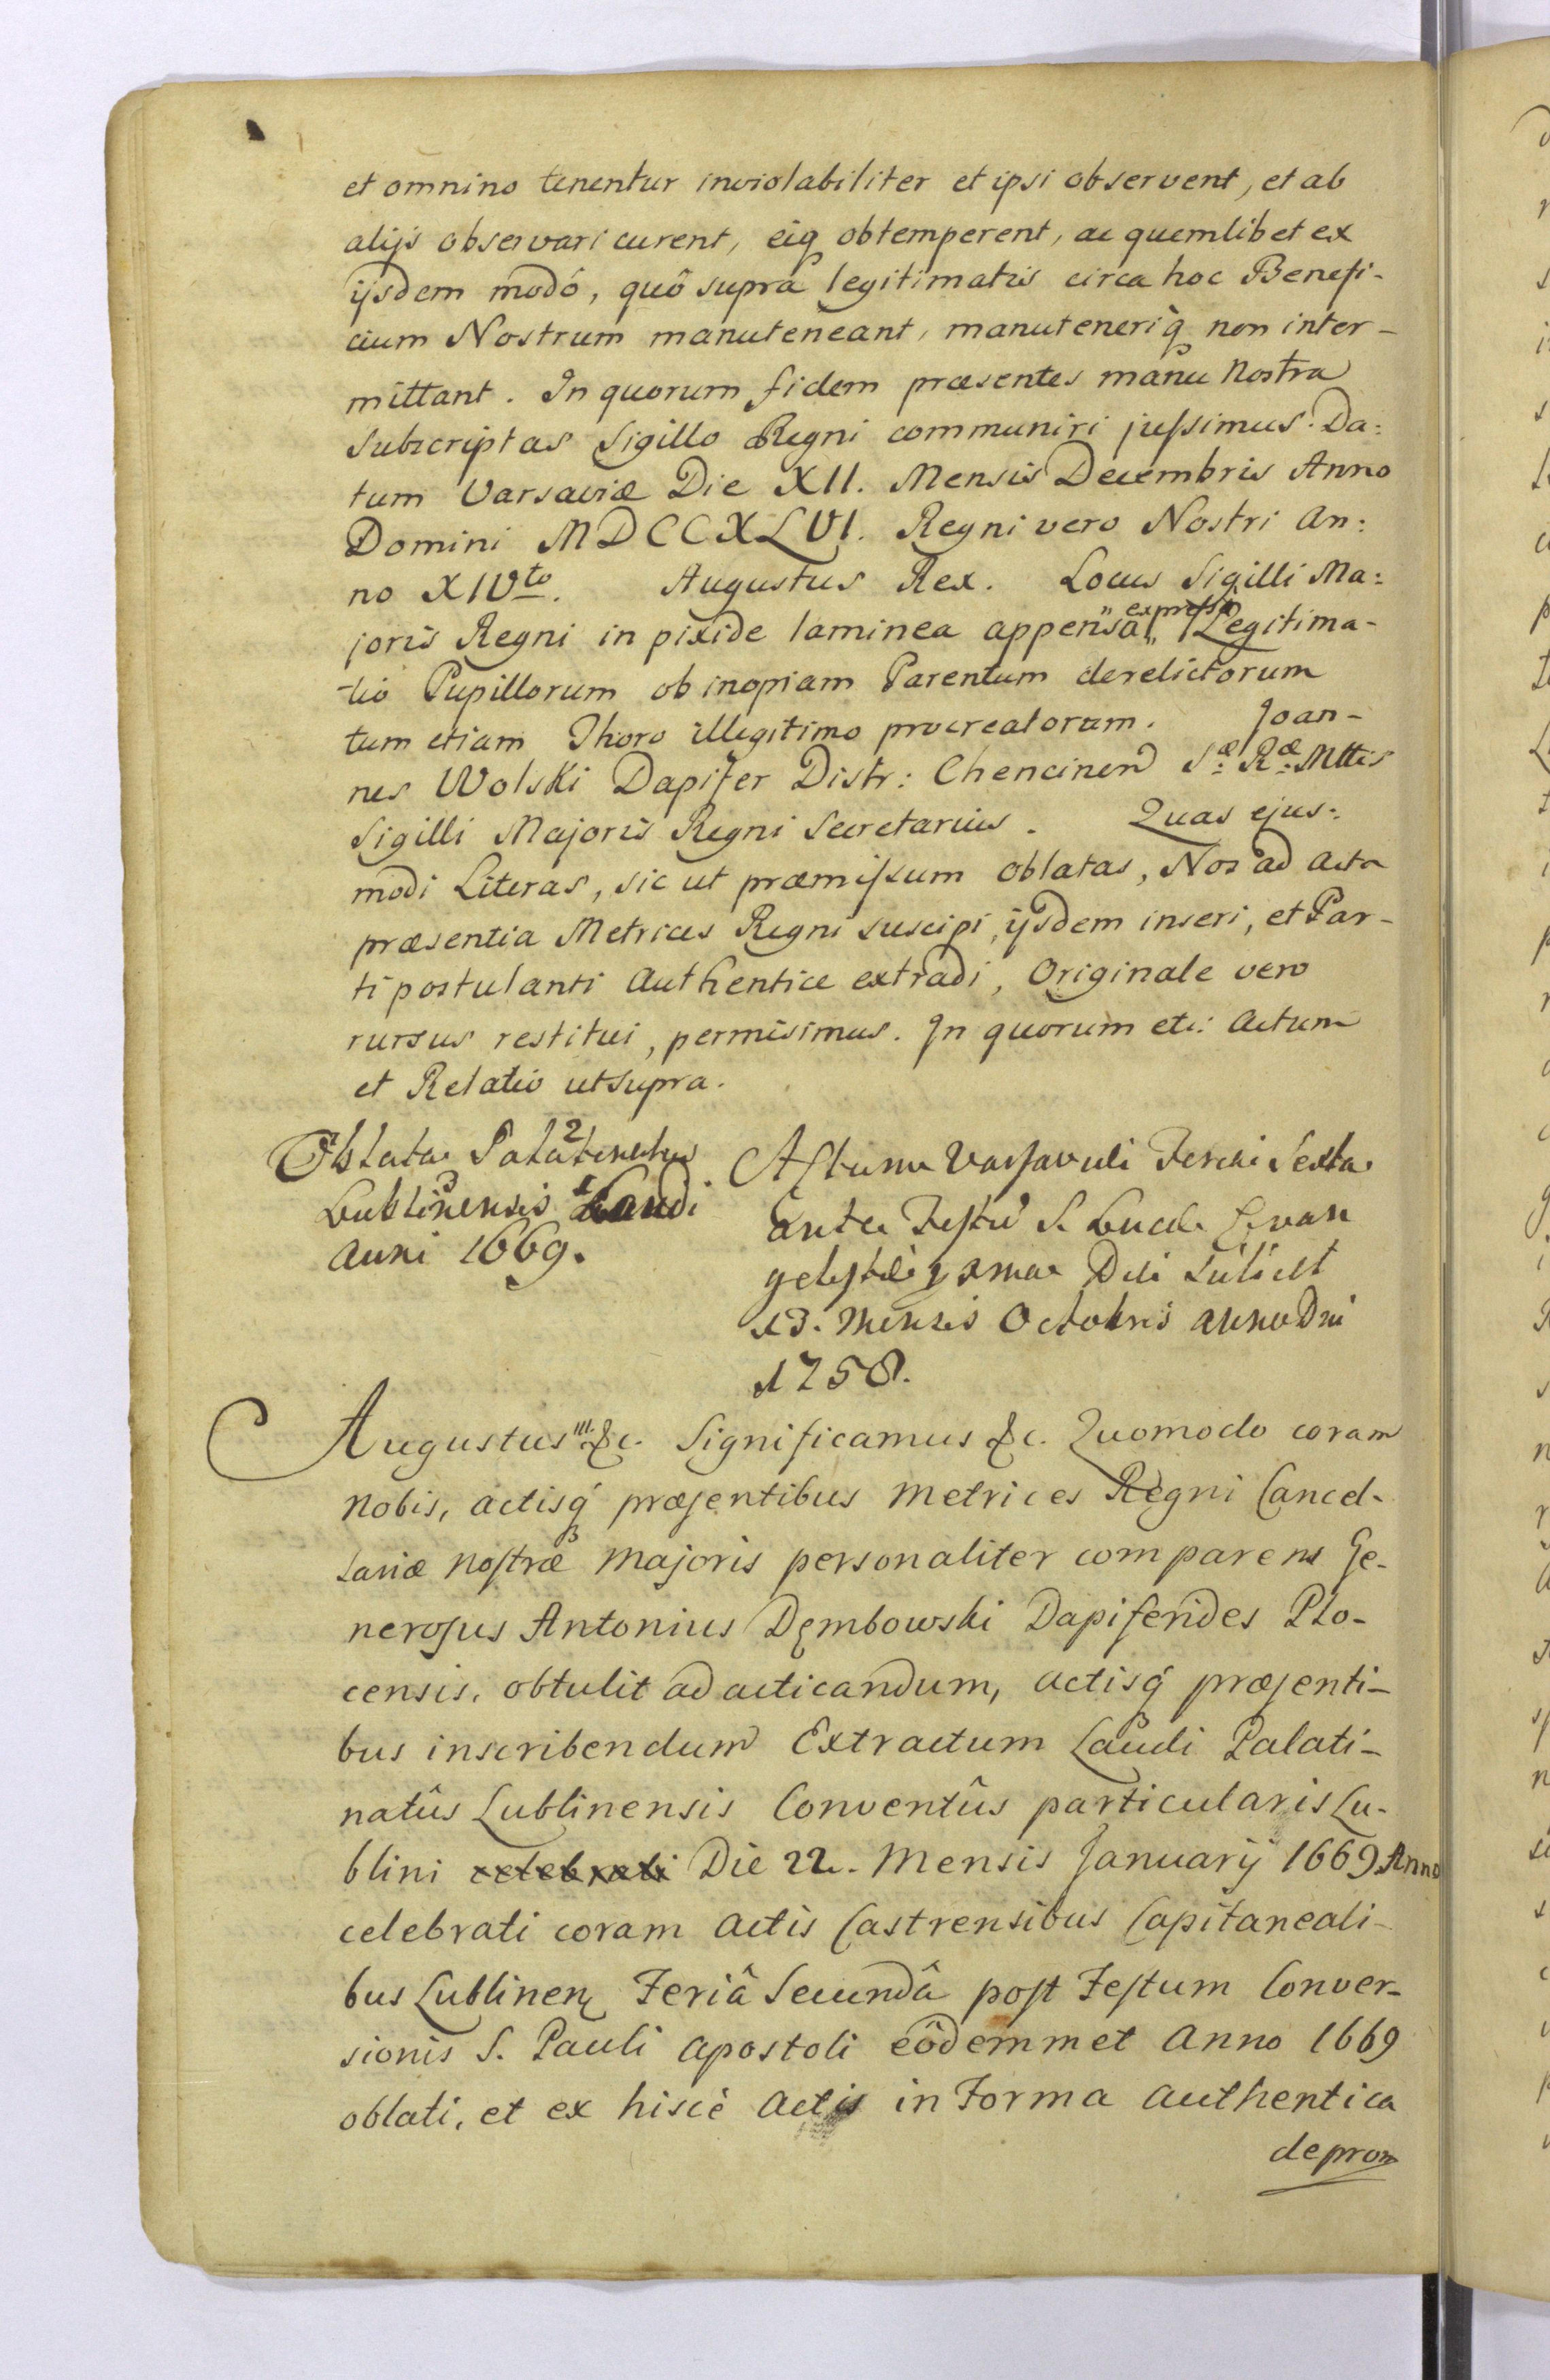 et omnino tenentur inviolabiliter et ipsi observent, et ab
alijs observari curent, eiq obtemperent, ac quemlibet ex
ijsdem modó, quô supra legitimatis circa hoc Benefi-
cium Nostrum manuteneant, manuteneriq non inter-
mittant. In quorum fidem præsentes manu Nostra
Subscriptas Sigillo Regni communiri jussimus. Da:
tum Varsaviæ Die XII. Mensis Decembris Anno
Domini MDCCXLVI. Regni vero Nostri An:
no XIVto. Augustus Rex. Locus Sigilli Ma:
joris Regni in pixide laminea appensa expressi Legitima-
tio Pupillorum ob inopiam Parentum derelictorum
tum etiam Thoro illegitimo procreatorum. Joan-
nes Wolski Dapifer Distr: Chencinen Sæ Ræ Mttis
Sigilli Majoris Regni Secretarius. Quas ejus:
modi Literas, sic ut præmissum oblatas, Nos ad Acta
præsentia Metrices Regni suscipi, ijsdem inseri, et Par-
ti postulanti Authentice extradi, Originale vero
rursus restitui, permisimus. In quorum etc: Actum
et Relatio ut supra.
Oblata Palatinatus
Lublinensis Laudi
Anni 1669.
Actum Varsaviæ Feria Sexta
ante Festũ S. Lucæ Evan
gelistæ Die Scilicet
13. Mensis Octobris anno Dni
1758.
Augustus III. &c. Significamus &c. Quomodo coram
Nobis, actisq præsentibus Metrices Regni Cancel-
lariæ Nostræ Majoris personaliter comparens Ge-
nerosus Antonius Dębowski Dapiferides Plo-
censis, obtulit ad acticandum, actisq præsenti-
bus inscribendum Extractum Laudi Palati-
natûs Lublinensis Conventûs particularis Lu-
blini celebrati Die 22. Mensis Januarij 1669 Anno
celebrati coram Actis Castrensibus Capitaneali-
bus Lublinen Feriâ Secundâ post Festum Conver-
sionis S. Pauli Apostoli eôdemmet Anno 1669
oblati, et ex hisce Actis in Forma Authentica
deprom